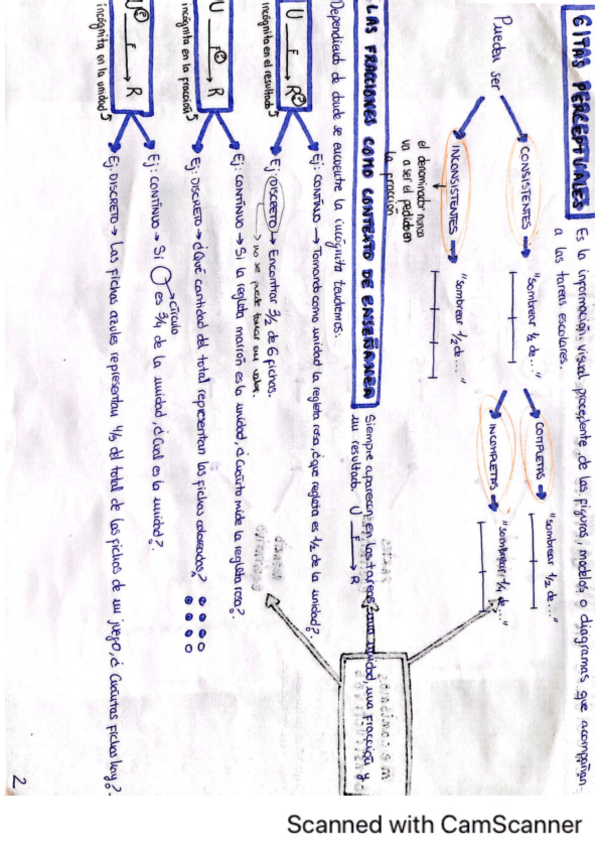 CITAS PERCEPTUALES Es la información visual procedente de las figuras, modelos o diagramas que acompañan
a las tareas escolares.
Pueden ser
CONSISTENTES → "sombrear ½ de..."
COMPLETAS → "sombrear ½ de..."
INCONSISTENTES → "sombrear ½ de..."
INCOMPLETAS → "sombrear ¼ de..."
el denominador nunca
va a ser el pedido en
la fracción
LAS FRACCIONES COMO CONTEXTO DE ENSEÑANZA Siempre aparecen en las tareas una unidad, una fracción y
un resultado. U F → R
Dependiendo de donde se encuentre la incógnita tendremos:
U F → R
incógnita en el resultado
Ej: CONTINUO → Tomando como unidad la regleta rosa, ¿qué regleta es ½ de la unidad?.
Ej: DISCRETO → Encontrar 3/2 de 6 fichas.
→ no se puede tomar un valor.
U F → R
incógnita en la fracción
Ej: CONTINUO → Si la regleta marrón es la unidad, ¿cuánto mide la regleta rosa?.
Ej: DISCRETO → ¿Qué cantidad del total representan las fichas coloreadas?
U F → R
incógnita en la unidad
Ej: CONTINUO → Si ○ es ¾ de la unidad, ¿cuál es la unidad?.
→ círculo
Ej: DISCRETO → Las fichas azules representan 4/5 del total de las fichas de un juego, ¿cuántas fichas hay?.
2
Scanned with CamScanner